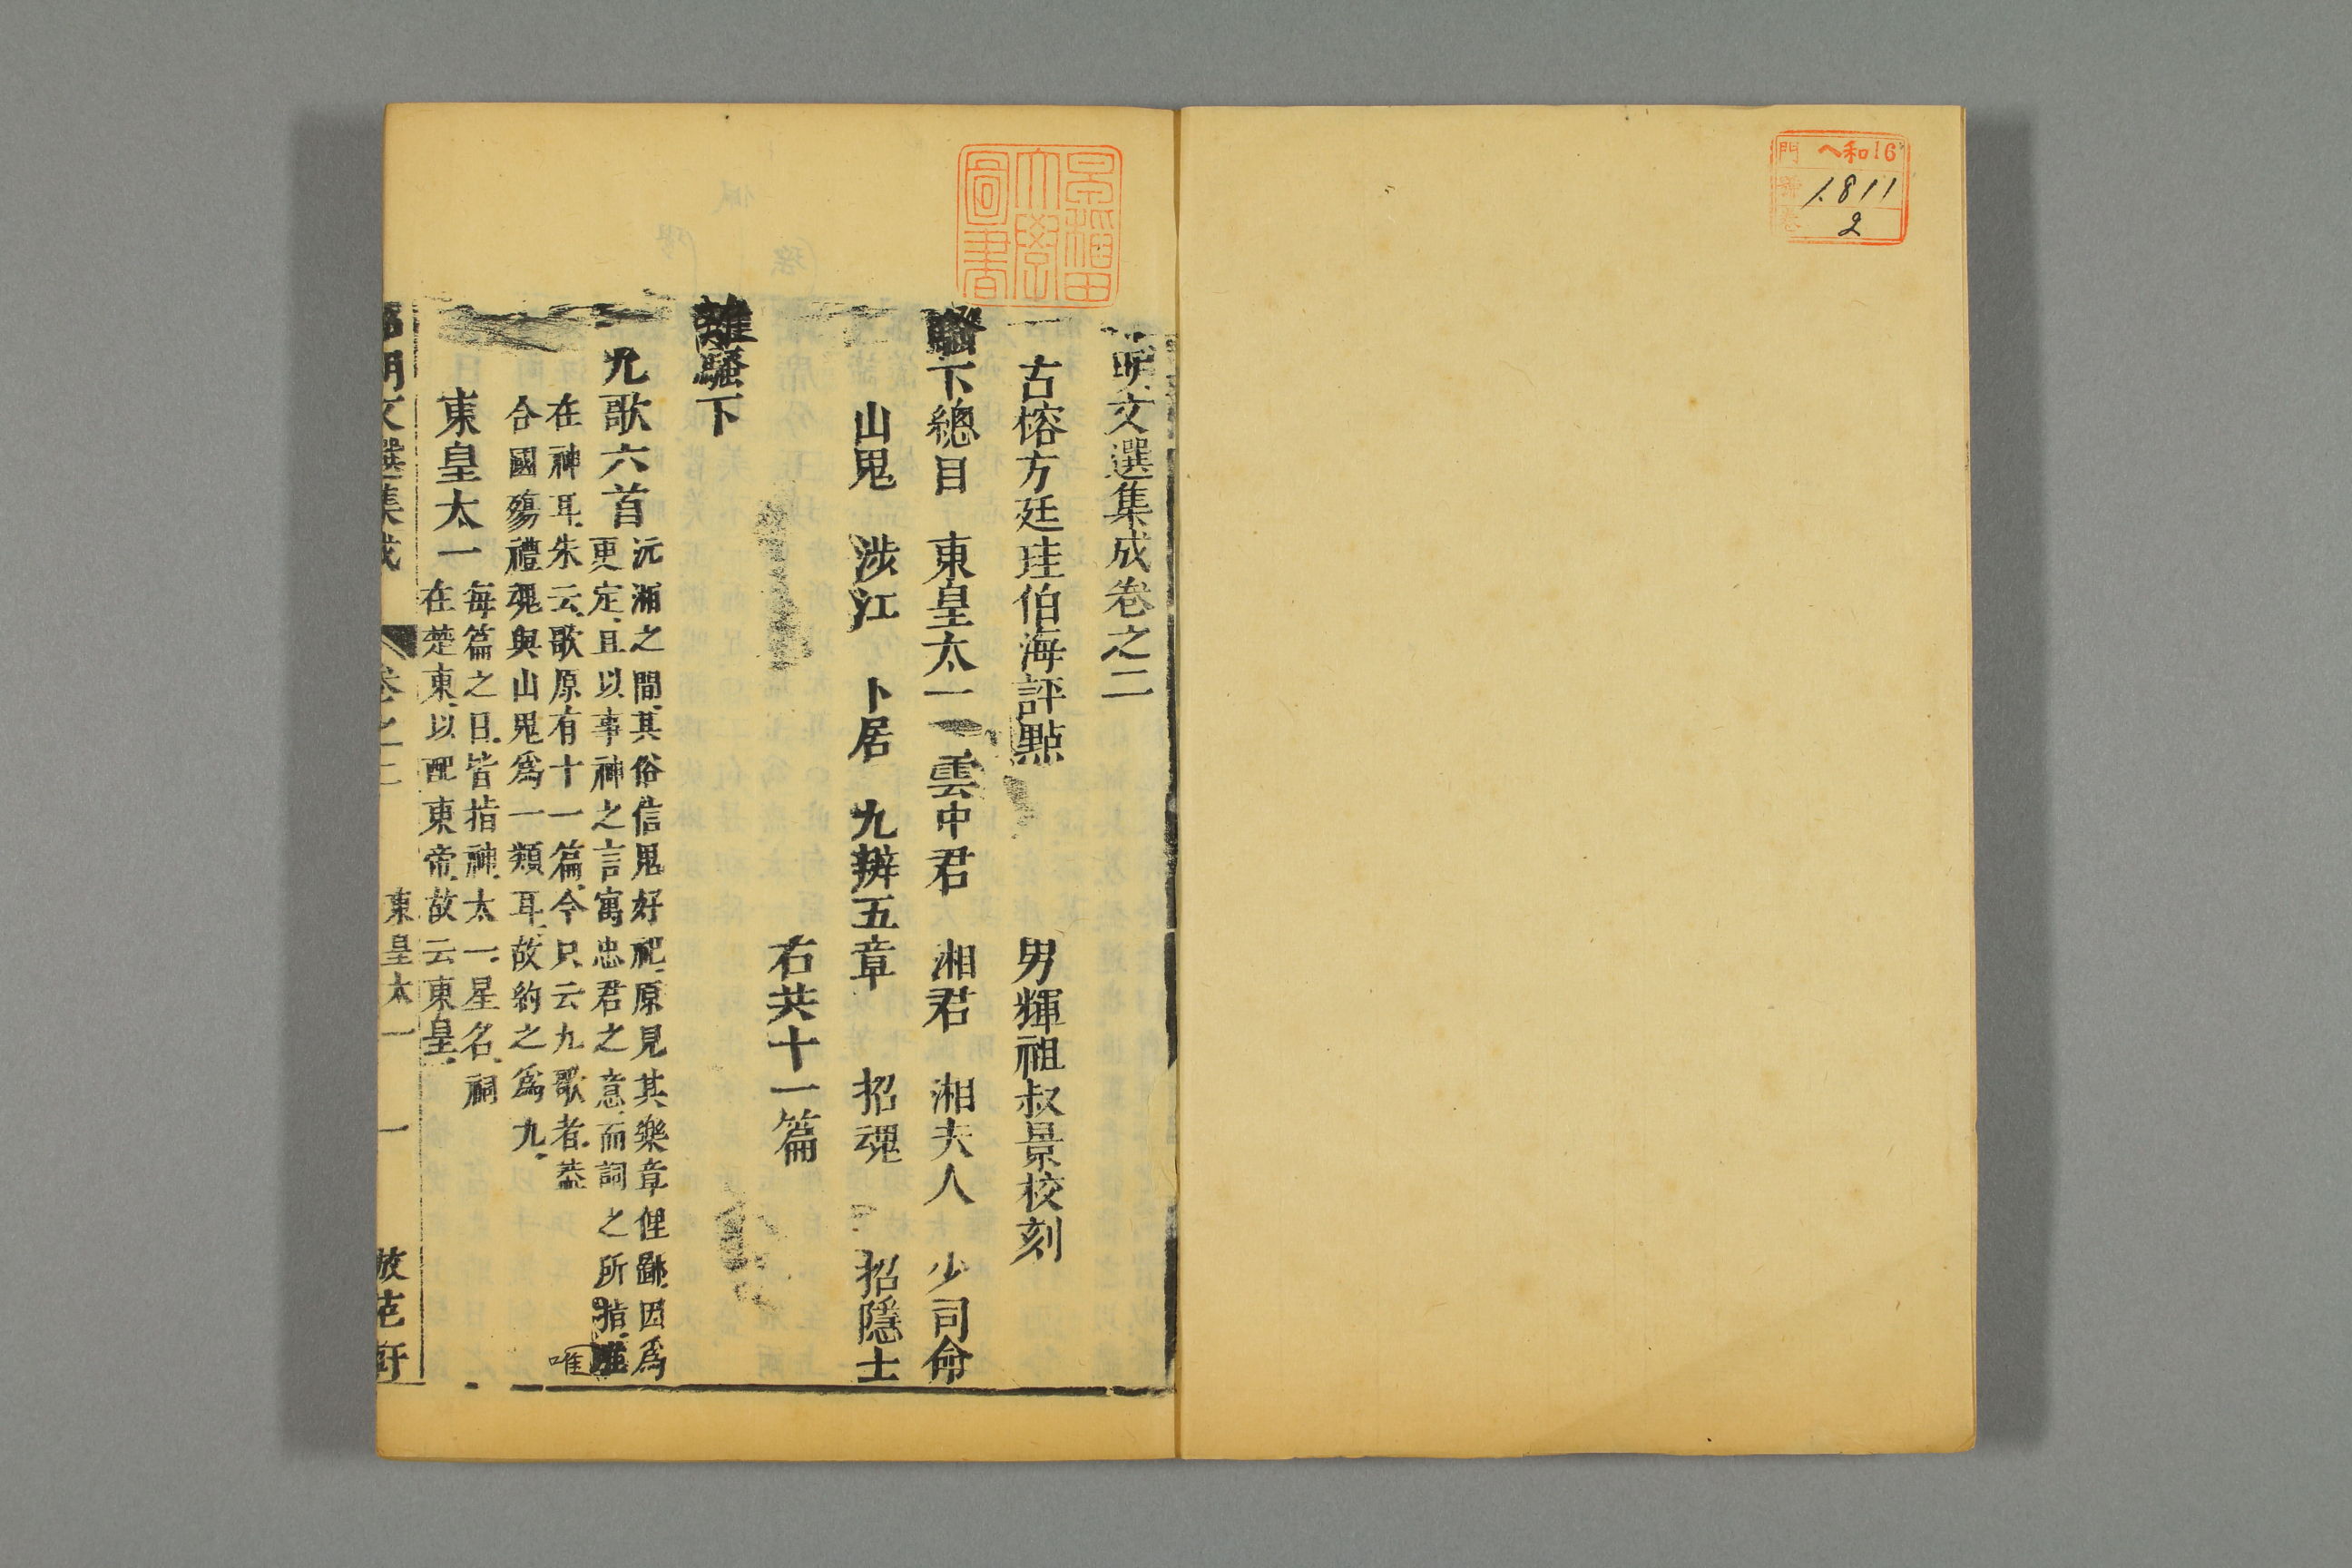 門 ヘ和16
號 1811
卷 2
早稲田大學圖書
明文選集成卷之二
古榕方廷珪伯海評點 男輝祖叔景校刻
騷下總目 東皇太一 雲中君 湘君 湘夫人 少司命
山鬼 涉江 卜居 九辨五章 招魂 招隱士
右共十一篇
離騷下
九歌六首 沅湘之間其俗信鬼好祀原見其樂章俚鄙因爲
更定且以事神之言寓忠君之意而詞之所指
唯
在神耳朱云歌原有十一篇今只云九歌者葢
合國殤禮魂與山鬼爲一類耳故約之爲九
東皇太一 每篇之日皆指神太一星名祠
在楚東以配東帝故云東皇
明文選集成 卷之二 東皇太一 一